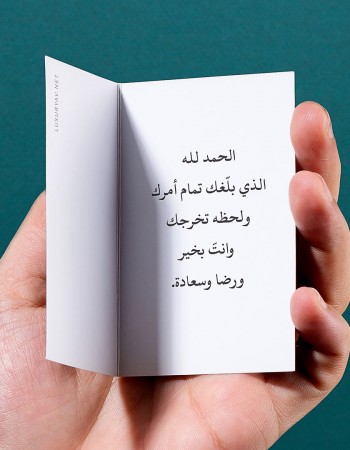 الحمد لله
الذي بلّغك تمام أمرك
ولحظه تخرجك
وانتَ بخير
ورضا وسعادة.